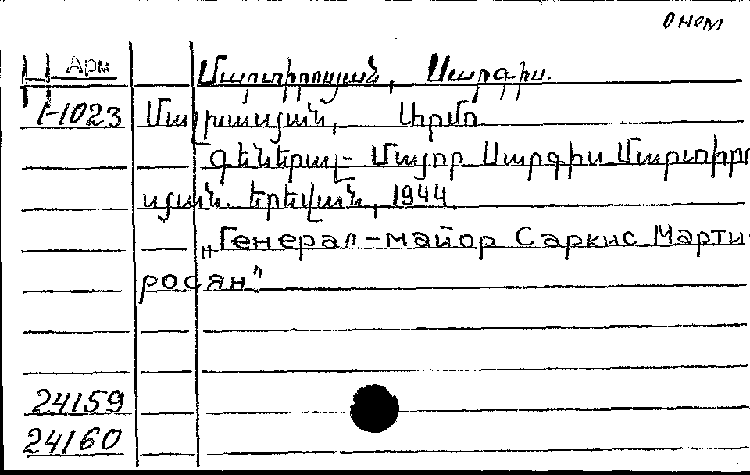 о нем
Арм Մարտիրոսյան, Սարգիս.
1-1023 Մալխասյան, Արմո
Գեներալ-Մայոր Սարգիս Մարտիրո
սյան. Երեվան, 1944.
„Генерал-майор Саркис Марти-
росян"
24159
24160